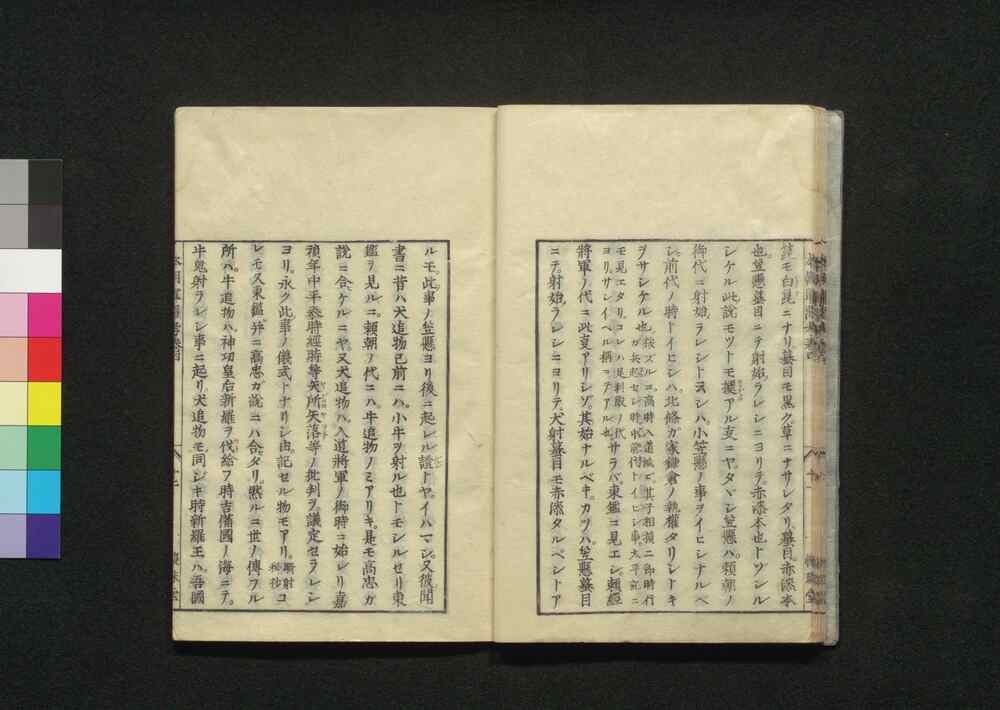 説モ白昆ニナリ蟇目モ黒ク草ニナサレタリ蟇目赤漆本
也笠懸蟇目ニテ射始ラレシニヨリテ赤漆本也トゾシル
シケル此説モツトモ據アル支ニヤタヾシ笠懸ハ頼朝ノ
御代ニ射始ラレシトスシハ小笠懸ノ事ヲイヒシナルベ
シ前代ノ時トイヒシハ北條ガ家鎌倉ノ執權タリシトキ
ヲサシケル也
按ズルニ高時入道滅シ其子相模二郎時行
ガ兵起セシ時中先代トイヒシ事太平記ニ
モ見エタリコレハ足利殿ノ代
ヨリサシイヘル稱ニテアル也
サラバ東鑑ニ見エシ頼經
將軍ノ代ニ此支アリシゾ其始ナルベキカツハ笠懸蟇目
ニテ射始ラレシニヨリテ犬射蟇目モ赤漆タルベシトア
ルモ此事ノ笠懸ヨリ後ニ起レル證トヤイハマシ又彼聞
書ニ昔ハ犬追物已前ニハ小牛ヲ射ル也トモシルセリ東
鑑ヲ見ルニ頼朝ノ代ニハ牛追物ノミアリキ是モ高忠ガ
說ニ合ケルニヤ又犬追物ハ入道將軍ノ御時ニ始レリ嘉
禎年中平泰時經時等矢所矢落等ノ批判ヲ議定セラレシ
ヨリ永ク此事ノ儀式トナリシ由記セル物モアリ
騎射
秘抄
コ
レモ又東鑑幷ニ高忠ガ說ニハ合タリ然ルニ世ノ傳フル
所ハ牛追物ハ神功皇后新羅ヲ伐給フ時吉備國ノ海ニテ
牛鬼射ラレシ事ニ起リ犬追物モ同シキ時新羅王ハ吾國